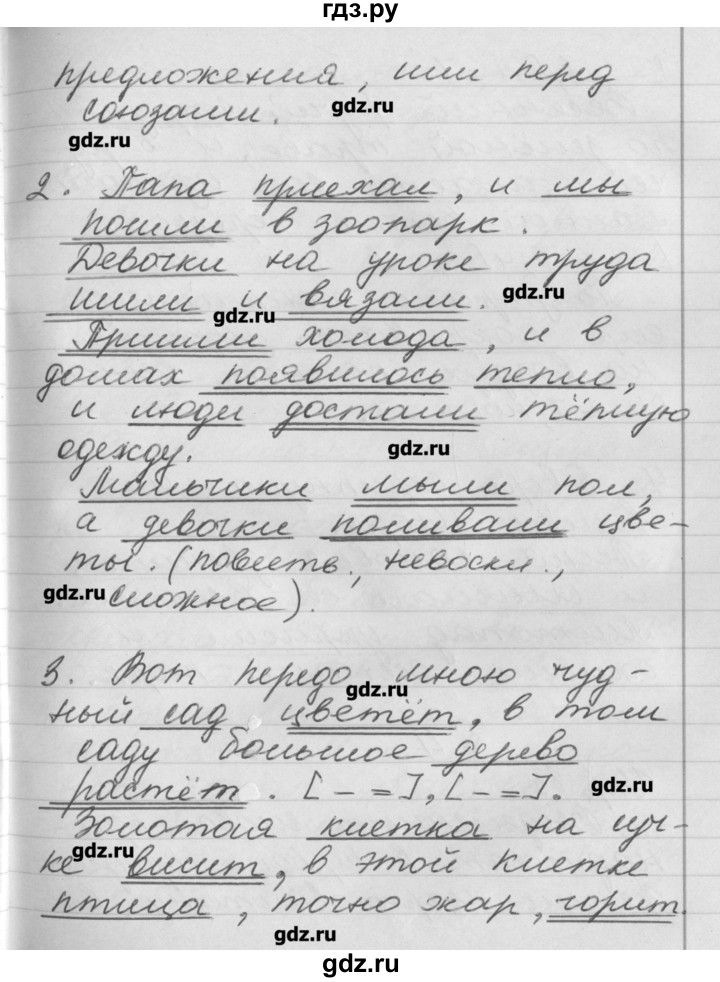 гдз.ру
предложения, или перед
союзами.
gdz.ru
gdz.ru
2. Папа приехал, и мы
пошли в зоопарк.
Девочки на уроке труда
шили и вязали.
gdz.ru
gdz.ru
Пришли холода, и в
домах появилось тепло,
и люди достали тёплую
одежду.
gdz.ru
Мальчики мыли пол,
а девочки поливали цве-
ты. (повеств., невоскл.,
gdz.ru
сложное).
3. Вот передо мною чуд-
gdz.ru
ный сад цветёт, в том
саду большое дерево
растёт. [ - = ], [ - = ].
gdz.ru
Золотая клетка на су-
ке висит, в этой клетке
gdz.ru
птица, точно жар, горит.
gdz.ru
gdz.ru